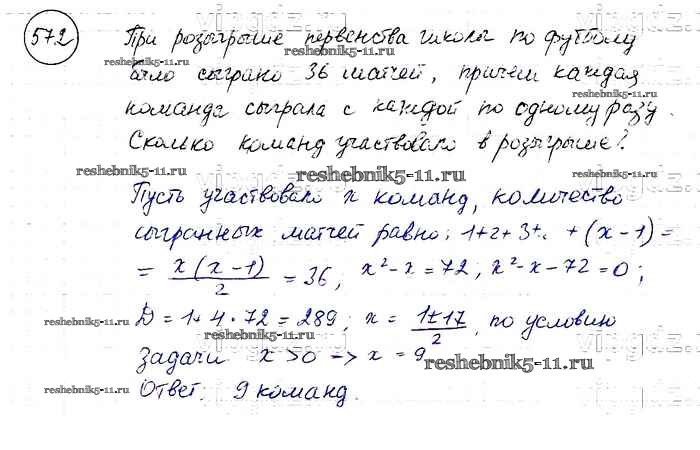 572
При розыгрыше первенства школы по футболу
было сыграно 36 матчей, причем каждая
команда сыграла с каждой по одному разу.
Сколько команд участвовало в розыгрыше?
Пусть участвовало x команд, количество
сыгранных матчей равно: 1+2+3+.. +(x-1)=
= x(x-1)/2 = 36; x²-x=72; x²-x-72=0;
D=1+4·72=289; x = 1±17/2, по условию
задачи x>0 -> x=9
Ответ. 9 команд.
reshebnik5-11.ru
reshebnik5-11.ru
reshebnik5-11.ru
reshebnik5-11.ru
reshebnik5-11.ru
reshebnik5-11.ru
reshebnik5-11.ru
reshebnik5-11.ru